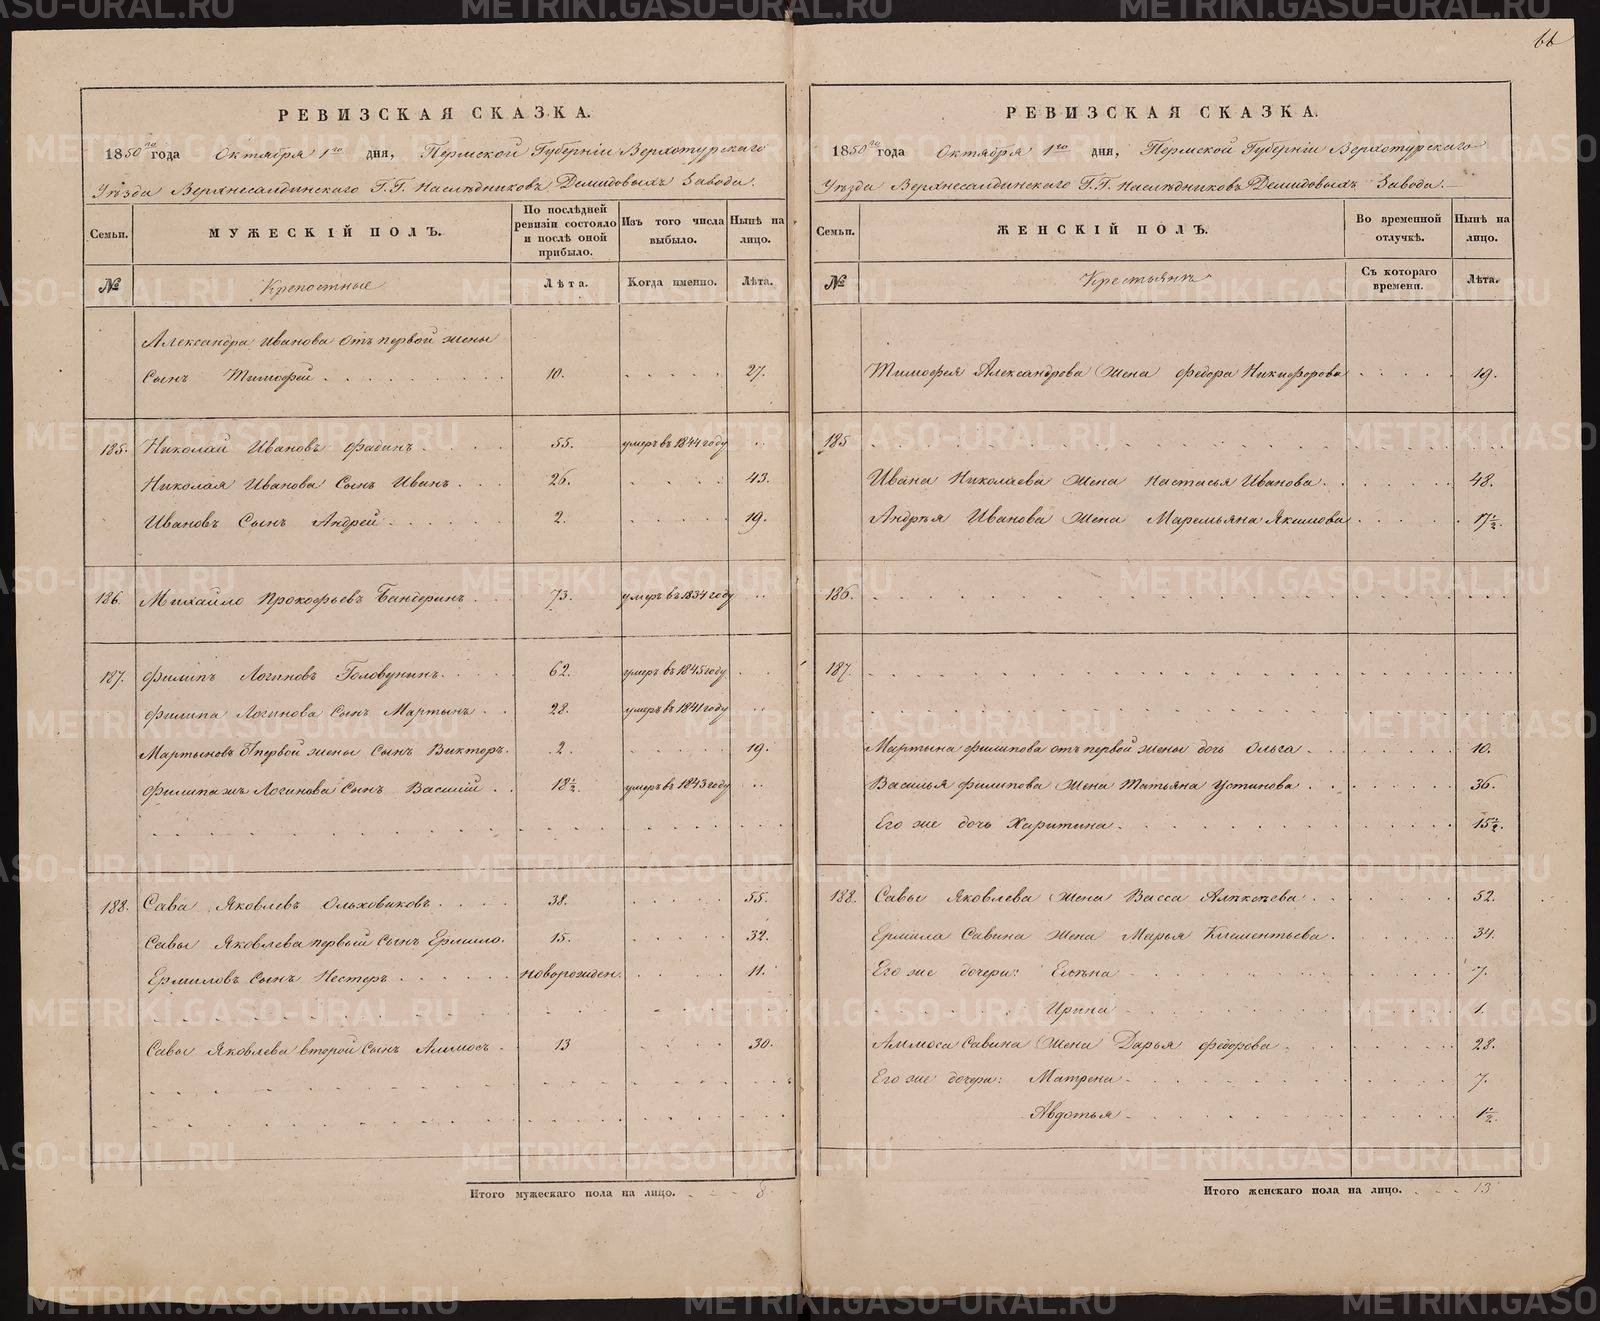 66
РЕВИЗСКАЯ СКАЗКА.
1850го года Октября 1го дня, Пермской Губернiи Верхотурскаго
Уѣзда Верхнесалдинскаго Г.Г. Наслѣдниковъ Демидовыхъ Завода.
Семьи.
МУЖЕСКIЙ ПОЛЪ.
По послѣдней ревизiи состояло и послѣ оной прибыло.
Изъ того числа выбыло.
Нынѣ на лицо.
№
Крепостные
Лѣта.
Когда именно.
Лѣта.
Александра Иванова отъ первой жены
Сынъ Тимофей 10. 27.
185. Николай Ивановъ Фадинъ 55. умеръ въ 1844 году
Николая Иванова Сынъ Иванъ 26. 43.
Ивановъ Сынъ Андрей 2. 19.
186. Михайло Прокофьевъ Бандеринъ 73. умеръ въ 1834 году
187. Филипъ Логиновъ Головунинъ 62. умеръ въ 1845 году
Филипа Логинова Сынъ Мартынъ 28. умеръ въ 1841 году
Мартыновъ первой жены Сынъ Викторъ. 2. 19.
Филипа жъ Логинова Сынъ Василiй 18½. умеръ въ 1843 году
188. Сава Яковлевъ Ольховиковъ 38. 55.
Савы Яковлева первый Сынъ Ермило. 15. 32.
Ермиловъ Сынъ Нестеръ новорожден. 11.
Савы Яковлева второй Сынъ Аммосъ 13 30.
Итого мужескаго пола на лицо. 8
РЕВИЗСКАЯ СКАЗКА.
1850го года Октября 1го дня, Пермской Губернiи Верхотурскаго
Уѣзда Верхнесалдинскаго Г.Г. Наслѣдниковъ Демидовыхъ Завода.
Семьи.
ЖЕНСКIЙ ПОЛЪ.
Во временной отлучкѣ.
Нынѣ на лицо.
№
Крестьянъ
Съ котораго времени.
Лѣта.
Тимофея Александрова Жена Федора Никифорова 19.
185
Ивана Николаева Жена Настасья Иванова 48.
Андрѣя Иванова Жена Маремьяна Якимова 17½.
186.
187.
Мартына Филипова отъ первой жены дочь Ольга 10.
Василья Филипова Жена Татьяна Устинова 36.
Его же дочь Харитина 15½.
188. Савы Яковлева Жена Васса Алексѣева 52.
Ермила Савина Жена Марья Климентьева 34.
Его же дочери: Елѣна 7.
Ирина 1.
Аммоса Савина Жена Дарья Федорова 28.
Его же дочери: Матрена 7.
Авдотья 1½.
Итого женскаго пола на лицо. 13
METRIKI.GASO-URAL.RU